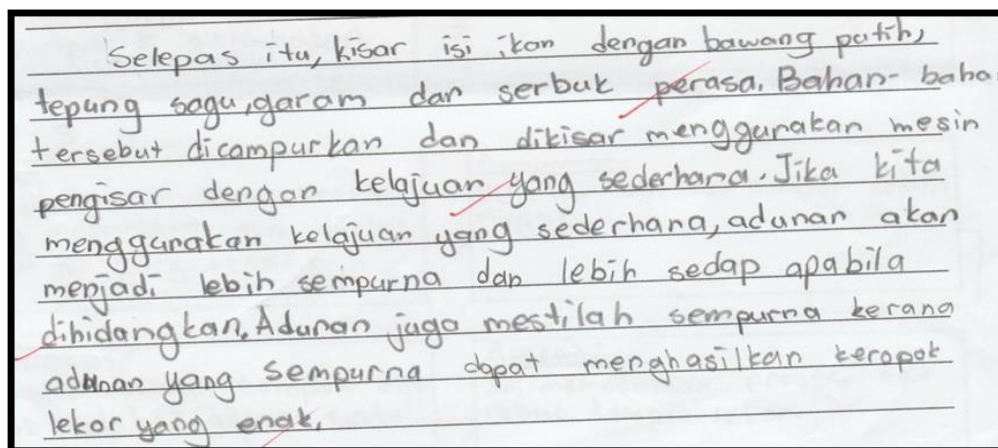 Selepas itu, kisar isi ikan dengan bawang putih,
tepung sagu, garam dan serbuk perasa. Bahan-baha
tersebut dicampurkan dan dikisar menggunakan mesin
pengisar dengan kelajuan yang sederhana. Jika kita
menggunakan kelajuan yang sederhana, adunan akan
menjadi lebih sempurna dan lebih sedap apabila
dihidangkan. Adunan juga mestilah sempurna kerana
adunan yang sempurna dapat menghasilkan keropok
lekor yang enak.